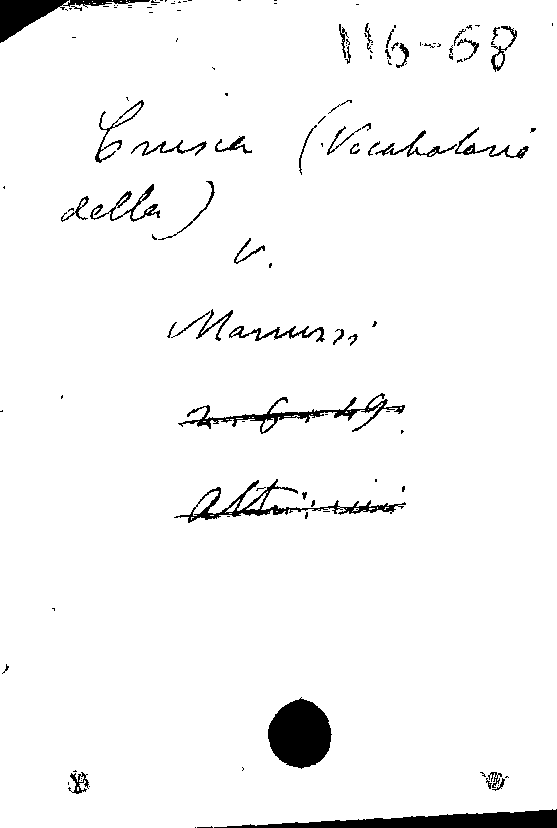 116-68
Crusca (Vocabolario
della)
V.
Manuzzi
2. 6. 49
Altri: